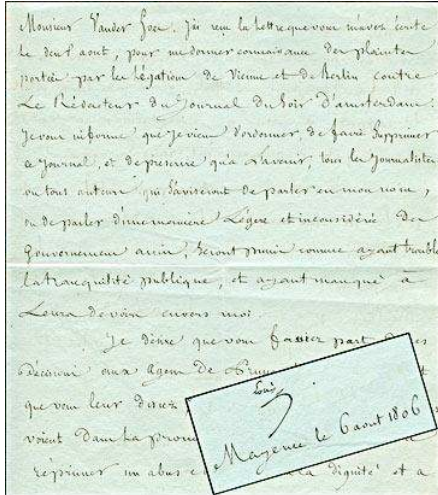 Monsieur Vander Goes. J'ai reçu la lettre que vous m'avez écrite
le deux aout, pour me donner connaissance des plaintes
portées par les légations de Vienne et de Berlin contre
Le Rédacteur du Journal du Soir d'amsterdam.
Je vous informe que je viens d'ordonner, de faire Supprimer
ce Journal, et de prescrire qu'à L'avenir, tous les Journalistes
ou tous auteurs qui s'aviseront de parler en mon nom,
ou de parler d'une manière Légère et inconsidérée des
Gouvernemens amis, Seront punis comme ayant troublé
la tranquilité publique, et ayant manqué à
Leurs devoirs envers moi
Je désire que vous fassiez part
décision aux agens de
que vous leur disiez
voient Dans la
réprimer un abus la dignité et a
Louis
Mayence le 6 aout 1806